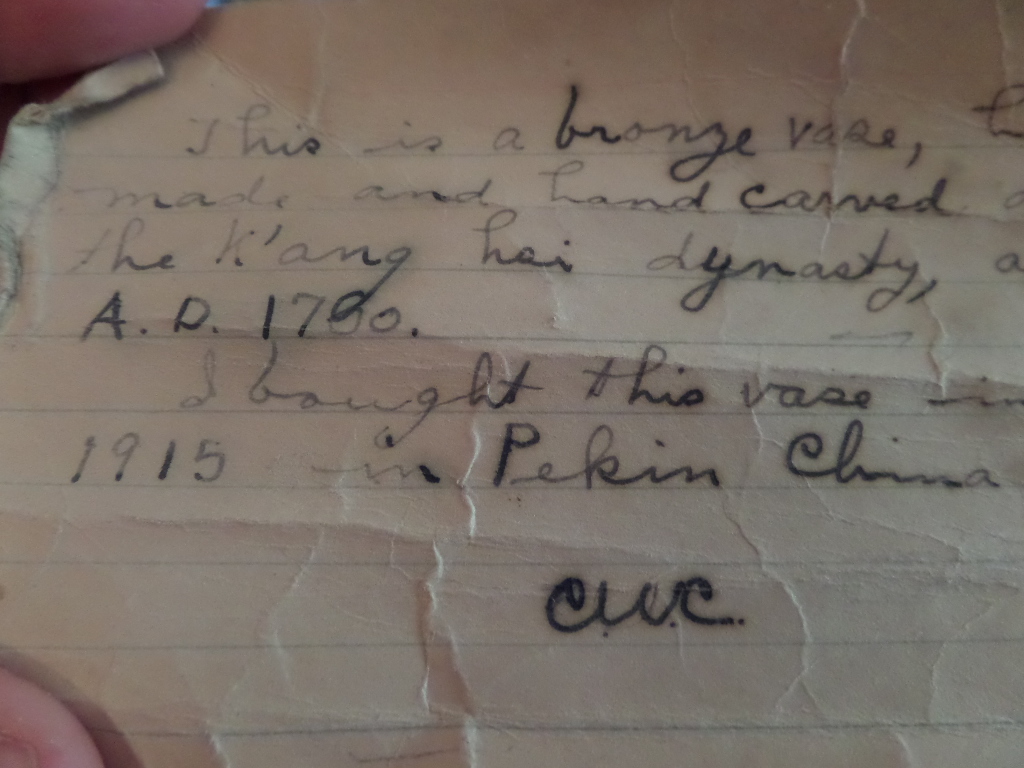 This is a bronze vase,
made and hand carved
the K'ang hsi dynasty,
A.D. 1780.
I bought this vase in
1915 in Pekin China
C.W.C.